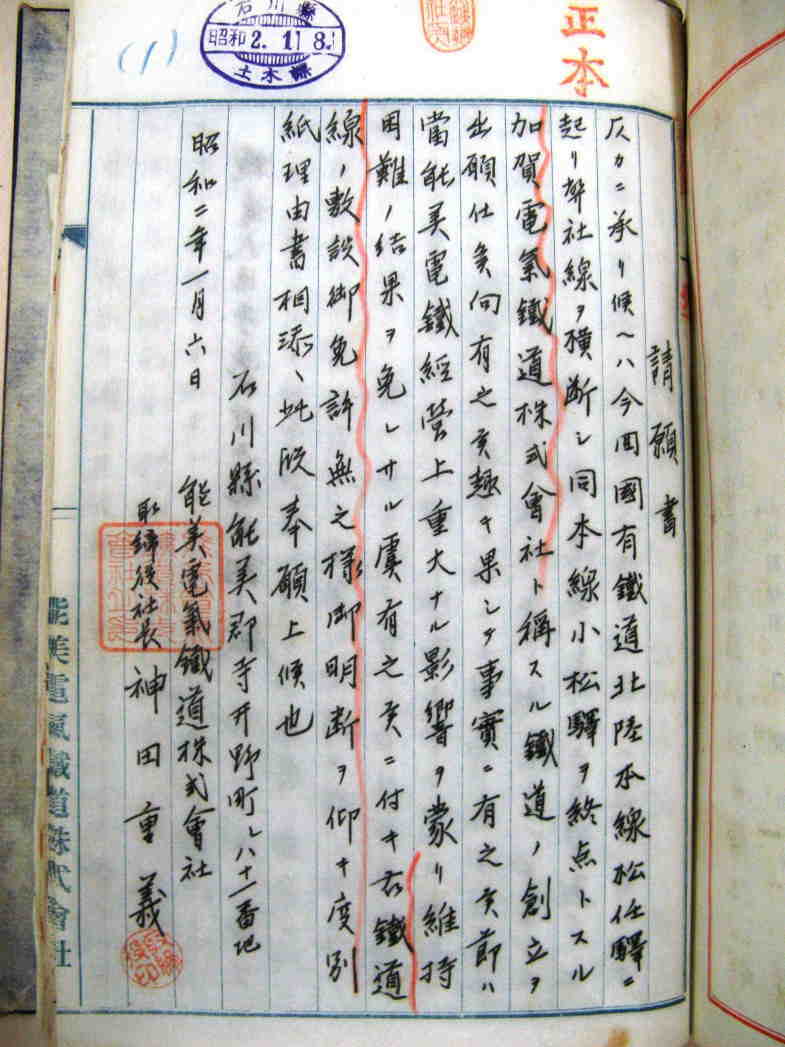 正本
石川縣
昭和2.1.18.
土木課
(1)
請願書
仄カニ承リ候ヘハ今回國有鐵道北陸本線松任驛ニ
起リ弊社線ヲ横断シ同本線小松驛ヲ終点トスル
加賀電氣鐵道株式會社ト稱スル鐵道ノ創立ヲ
出願仕候向有之候趣キ果シテ事實ニ有之候節ハ
當能美電鐵經營上重大ナル影響ヲ蒙リ維持
困難ノ結果ヲ免レサル虞有之候ニ付キ右鐵道
線ノ敷設御免許無之様御明断ヲ仰キ度別
紙理由書相添ヘ此段奉願上候也
昭和二年一月六日
石川縣能美郡寺井野町レ八十一番地
能美電氣鐵道株式會社
取締役社長 神田重義
能美電氣鐵道株式會社